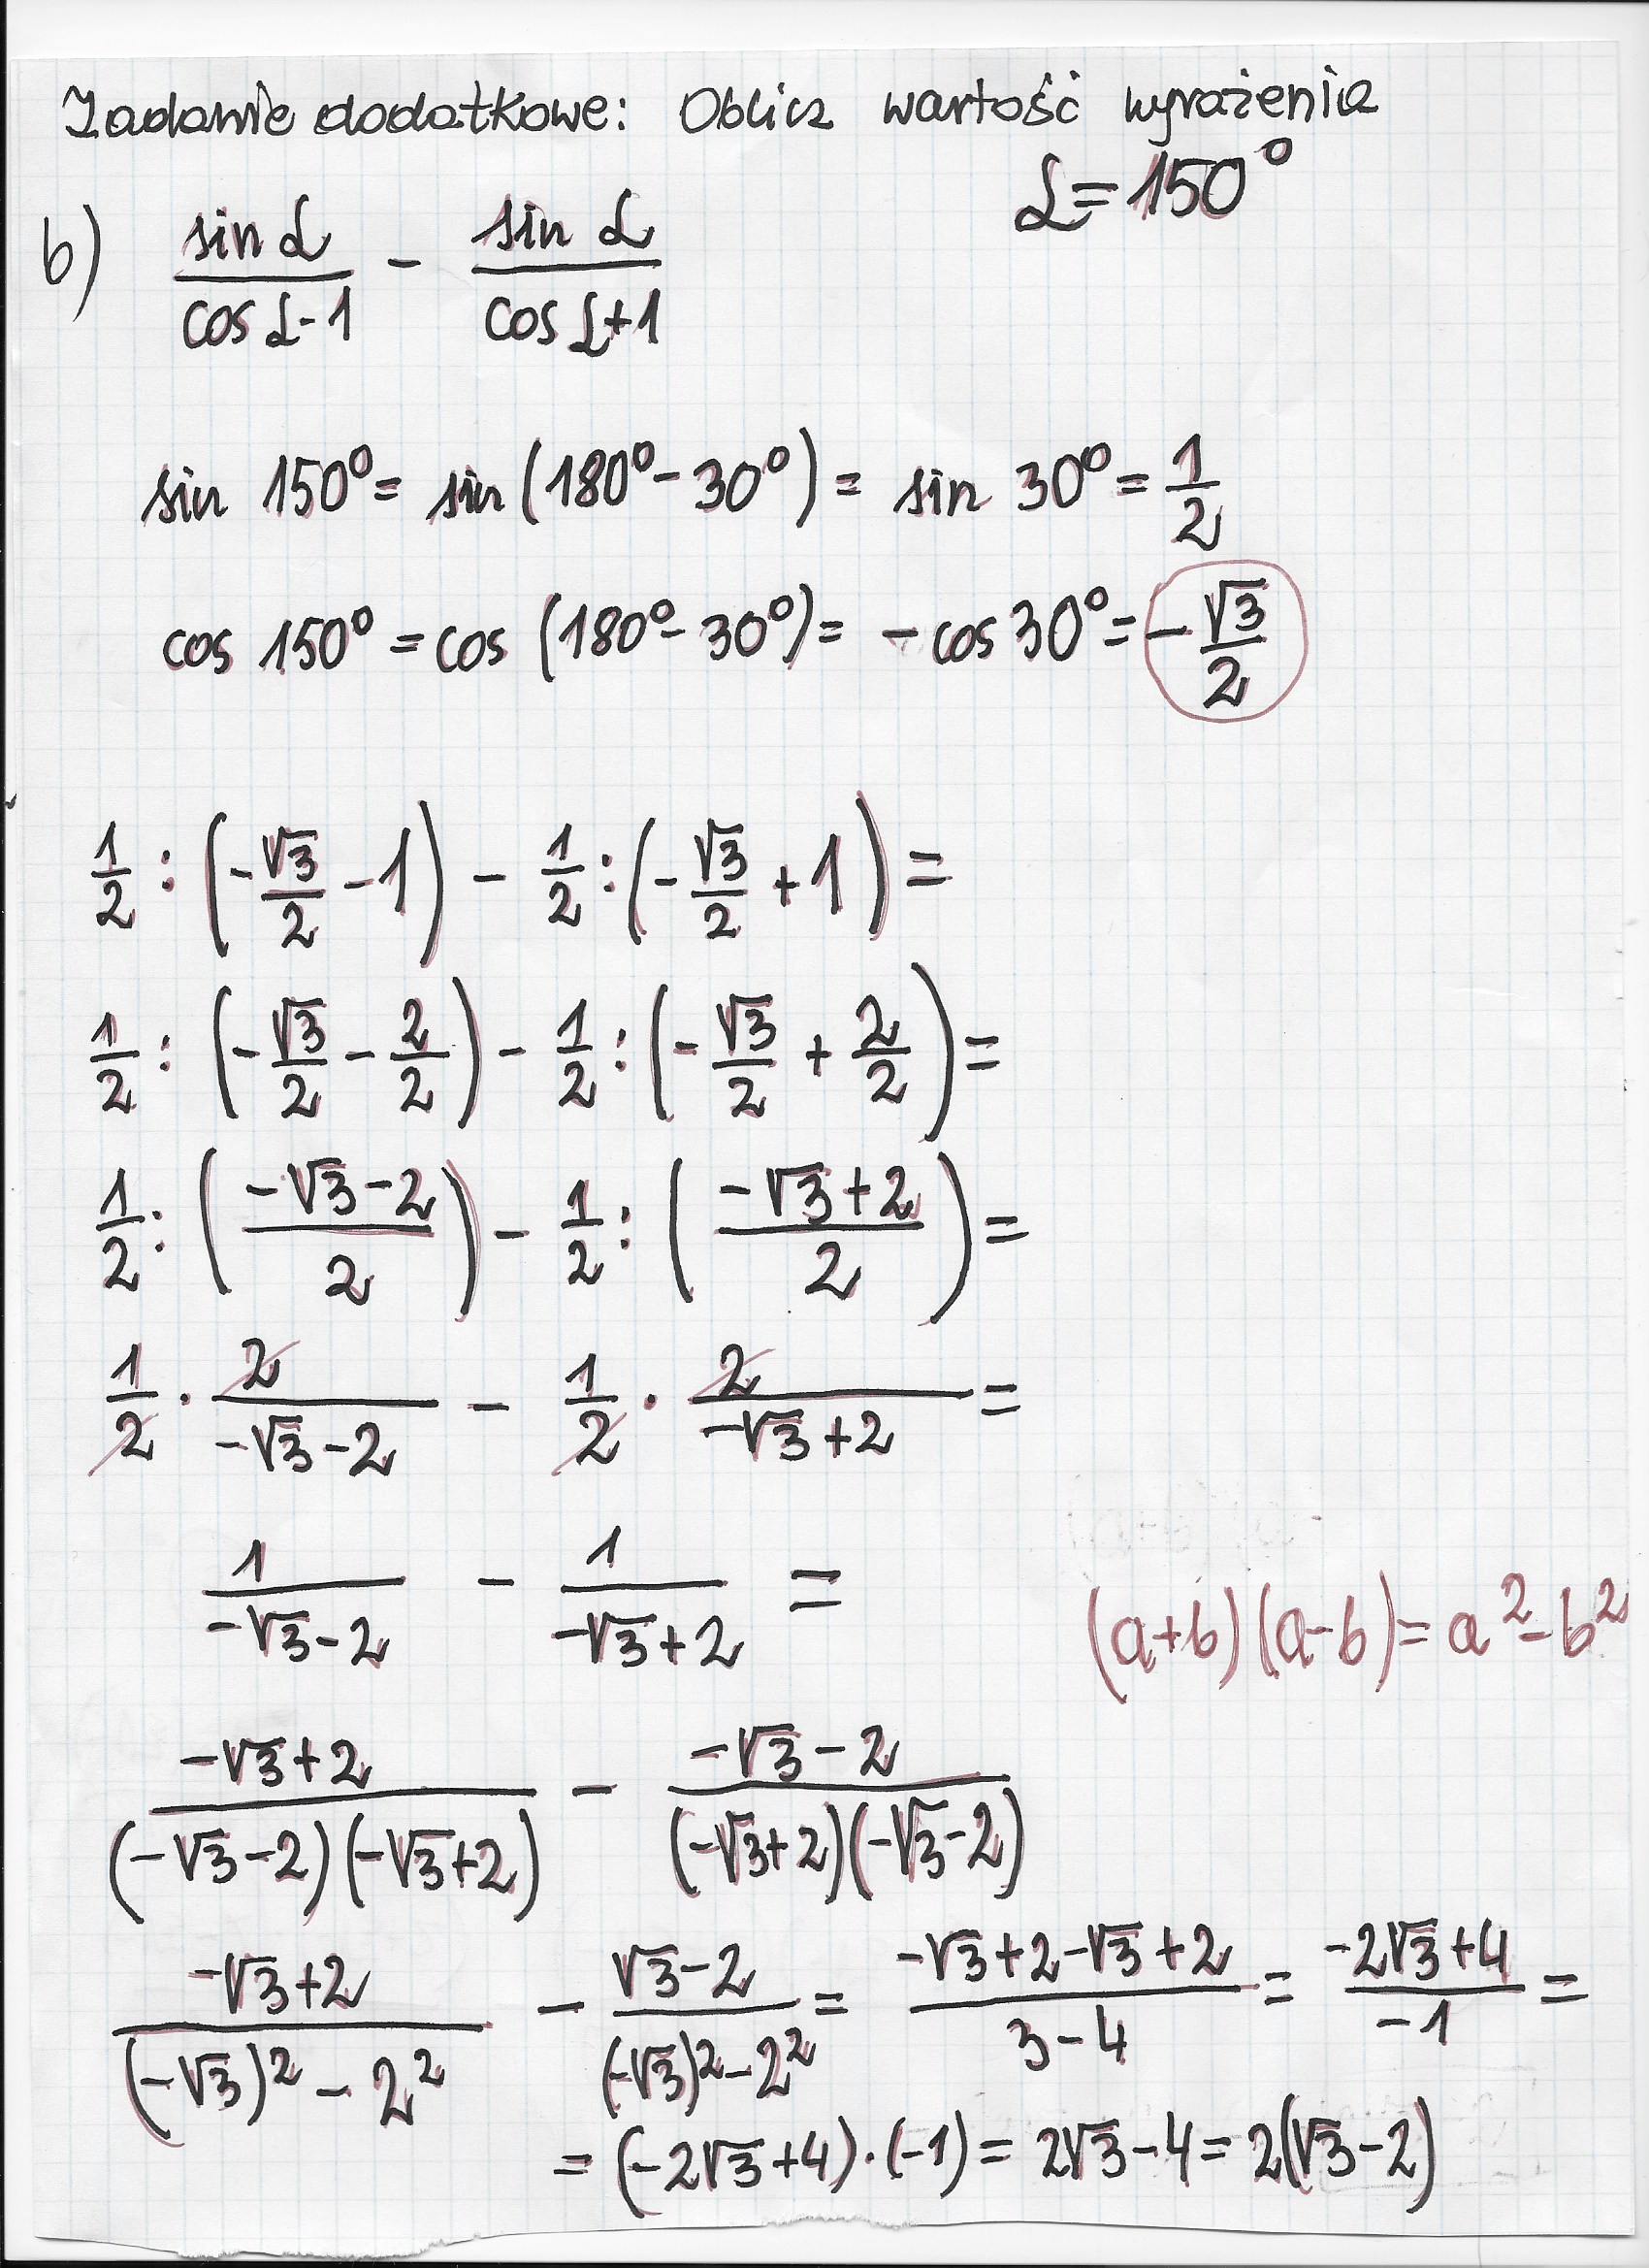 Zadanie dodatkowe: Oblicz wartość wyrażenia
α = 150°
b) sin α / (cos α - 1) - sin α / (cos α + 1)
sin 150° = sin (180° - 30°) = sin 30° = 1/2
cos 150° = cos (180° - 30°) = - cos 30° = - √3/2
1/2 : (- √3/2 - 1) - 1/2 : (- √3/2 + 1) =
1/2 : (- √3/2 - 2/2) - 1/2 : (- √3/2 + 2/2) =
1/2 : ((-√3 - 2)/2) - 1/2 : ((-√3 + 2)/2) =
1/2 · 2/(-√3 - 2) - 1/2 · 2/(-√3 + 2) =
1/(-√3 - 2) - 1/(-√3 + 2) =
(a+b)(a-b) = a² - b²
(-√3 + 2)/((-√3 - 2)(-√3 + 2)) - (-√3 - 2)/((-√3 + 2)(-√3 - 2))
(-√3 + 2)/((-√3)² - 2²) - (√3 - 2)/((-√3)² - 2²) = (-√3 + 2 - √3 + 2)/(3 - 4) = (-2√3 + 4)/(-1) =
= (-2√3 + 4) · (-1) = 2√3 - 4 = 2(√3 - 2)